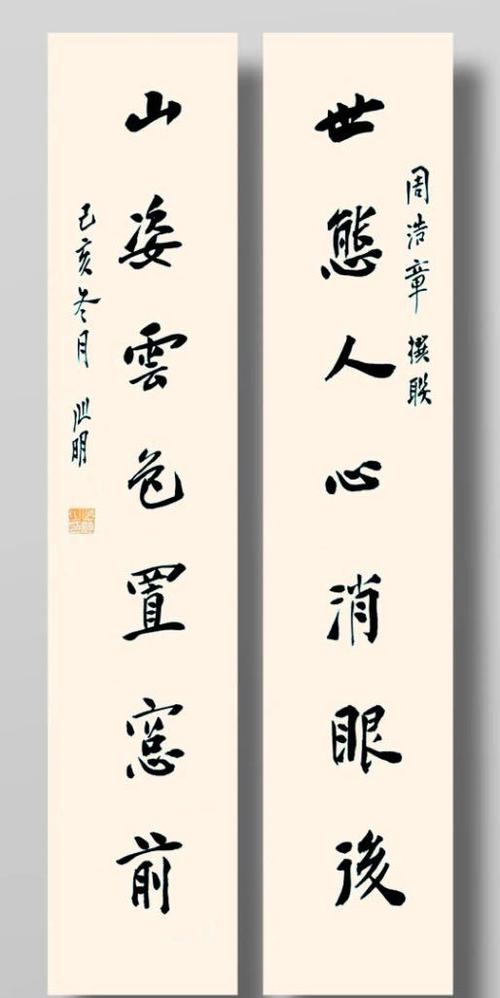 世態人心消眼後
周浩章 撰联
山姿雲色置窓前
己亥冬月